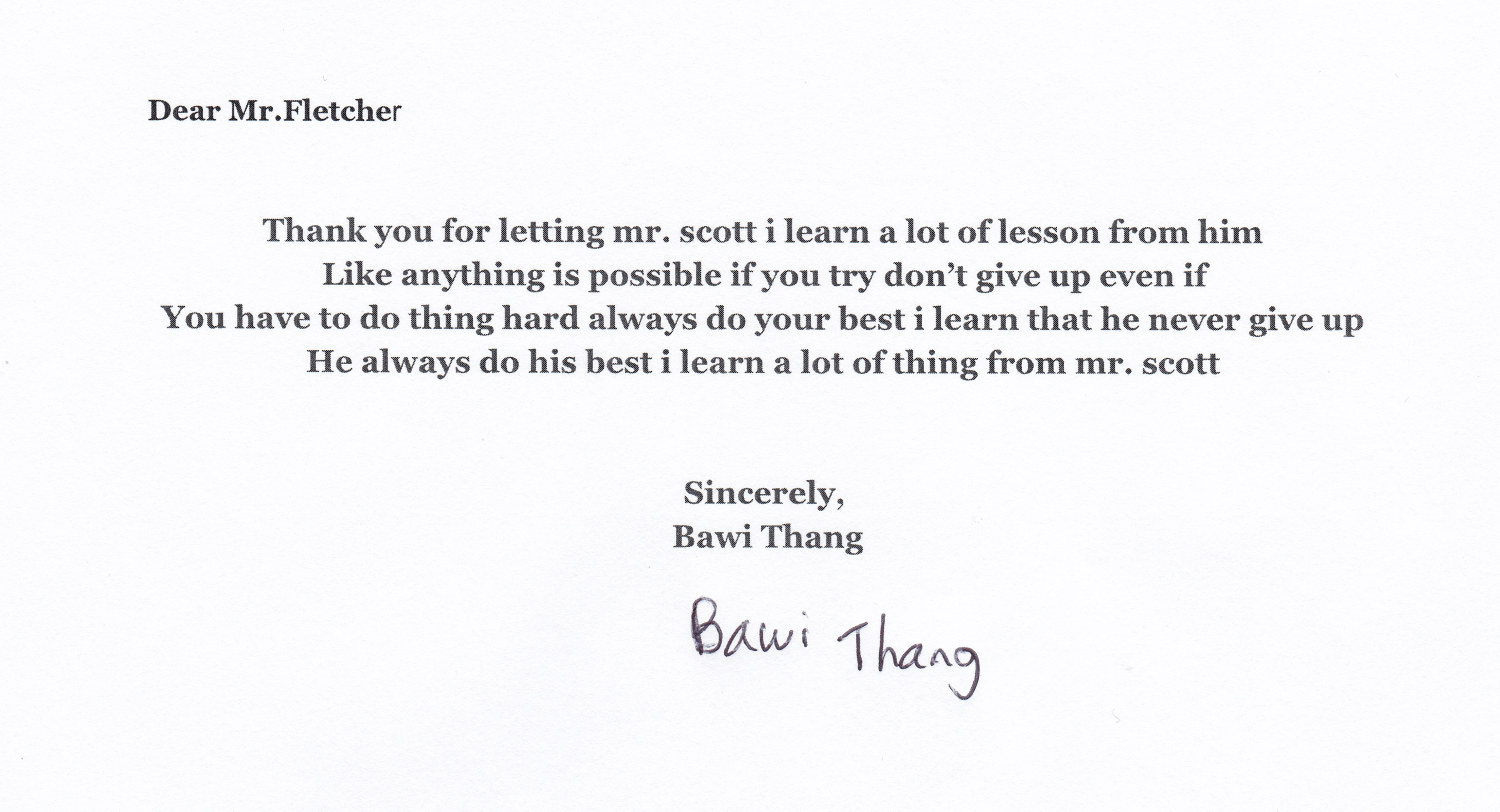 Dear Mr.Fletcher
Thank you for letting mr. scott i learn a lot of lesson from him
Like anything is possible if you try don’t give up even if
You have to do thing hard always do your best i learn that he never give up
He always do his best i learn a lot of thing from mr. scott
Sincerely,
Bawi Thang
Bawi Thang